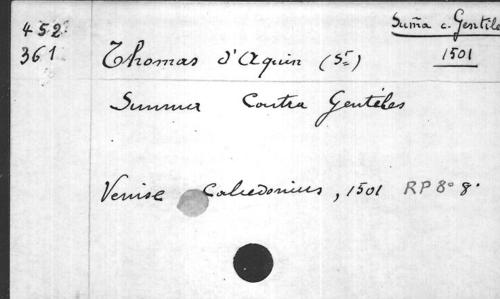 452
361
Suma c. Gentile
1501
Thomas d'Aquin (St)
Summa Contra Gentiles
Venise Calcedonius, 1501 RP 8° 8.